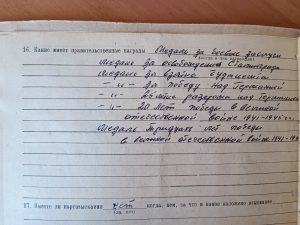 16. Какие имеет правительственные награды Медаль за боевые заслуги
Медаль за освобождение Сталинграда
Медаль за взятие Будапешта
-"- За победу над Германией
-"- разгрома над Германией
-"- 20 лет победы в Великой
отечественной войне 1941-1945
Медаль Тридцать лет победы
в великой отечественной войне 1941-19
17. Имеете ли партвзыскание нет когда, кем, за что и какое наложено взыскание